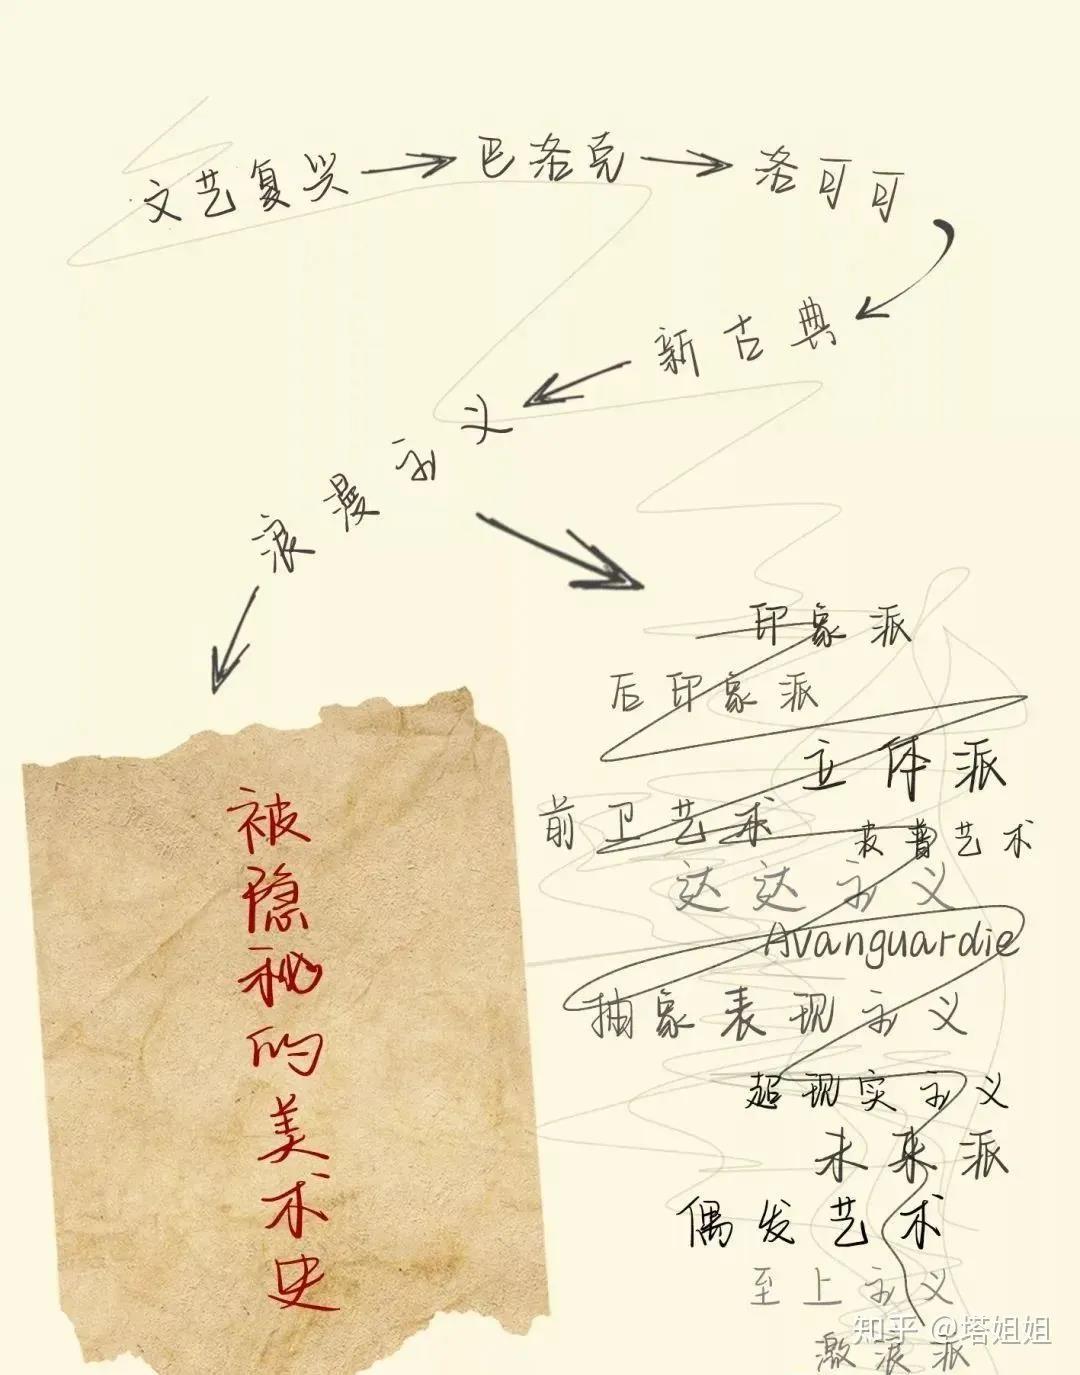 文艺复兴
巴洛克
洛可可
新古典
浪漫主义
印象派
后印象派
立体派
前卫艺术
波普艺术
达达主义
Avanguardie
抽象表现主义
超现实主义
未来派
偶发艺术
至上主义
激浪派
被隐秘的美术史
知乎 @塔姐姐